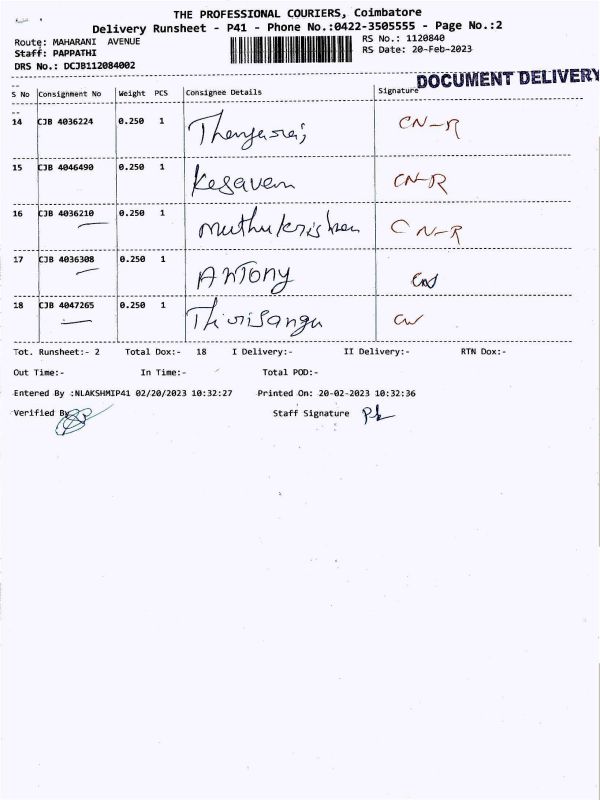 THE PROFESSIONAL COURIERS, Coimbatore
Delivery Runsheet - P41 - Phone No.:0422-3505555 - Page No.:2
Route: MAHARANI AVENUE
RS No.: 1120840
Staff: PAPPATHI
RS Date: 20-Feb-2023
DRS No.: DCJB112084002
DOCUMENT DELIVERY
S No Consignment No Weight PCS Consignee Details Signature
14 CJB 4036224 0.250 1 Thangaraj CN-R
15 CJB 4046490 0.250 1 Kesavan CN-R
16 CJB 4036210 0.250 1 Muthukrishnan CN-R
17 CJB 4036308 0.250 1 ANTONY
18 CJB 4047265 0.250 1 Thirisangu
Tot. Runsheet:- 2 Total Dox:- 18 I Delivery:- II Delivery:- RTN Dox:-
Out Time:- In Time:- Total POD:-
Entered By :NLAKSHMIP41 02/20/2023 10:32:27 Printed On: 20-02-2023 10:32:36
Verified By
Staff Signature